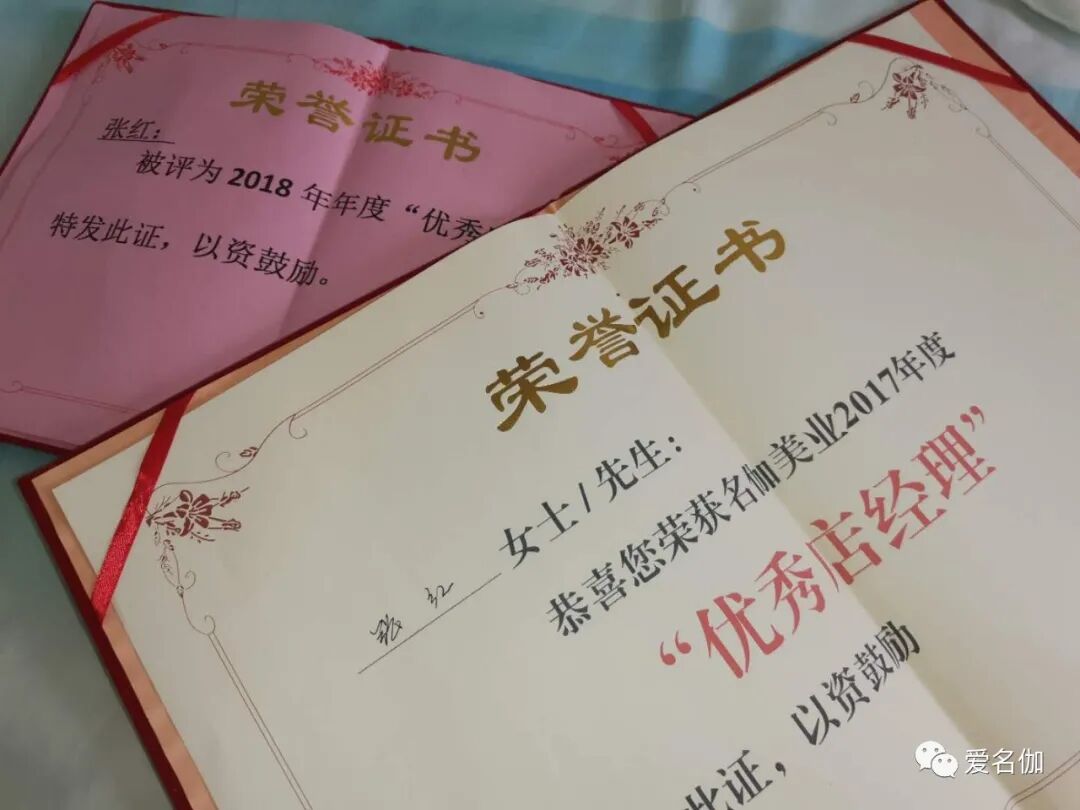 荣誉证书
张红：
被评为2018年年度“优秀
特发此证，以资鼓励。
荣誉证书
张红 女士/先生：
恭喜您荣获名伽美业2017年度
“优秀店经理”
此证，以资鼓励
爱名伽